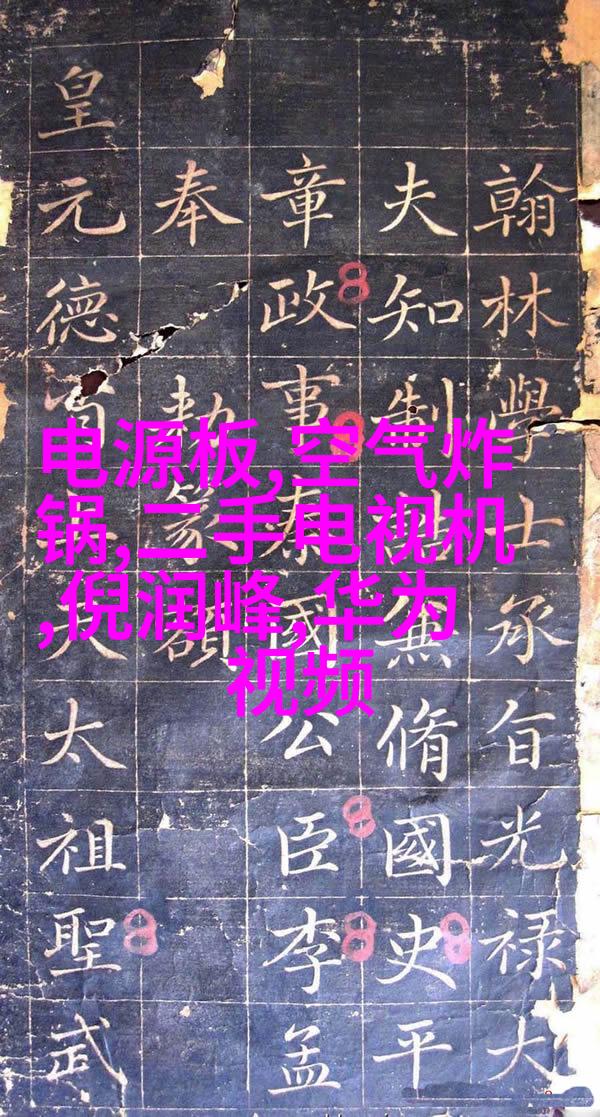 电源板,空气炸
锅,二手电视机
,倪润峰,华为
视频
翰林學士承旨光禄大
夫知制兼脩國史平
章政事秦國公臣李孟
奉勅篆額
皇元德太祖聖武